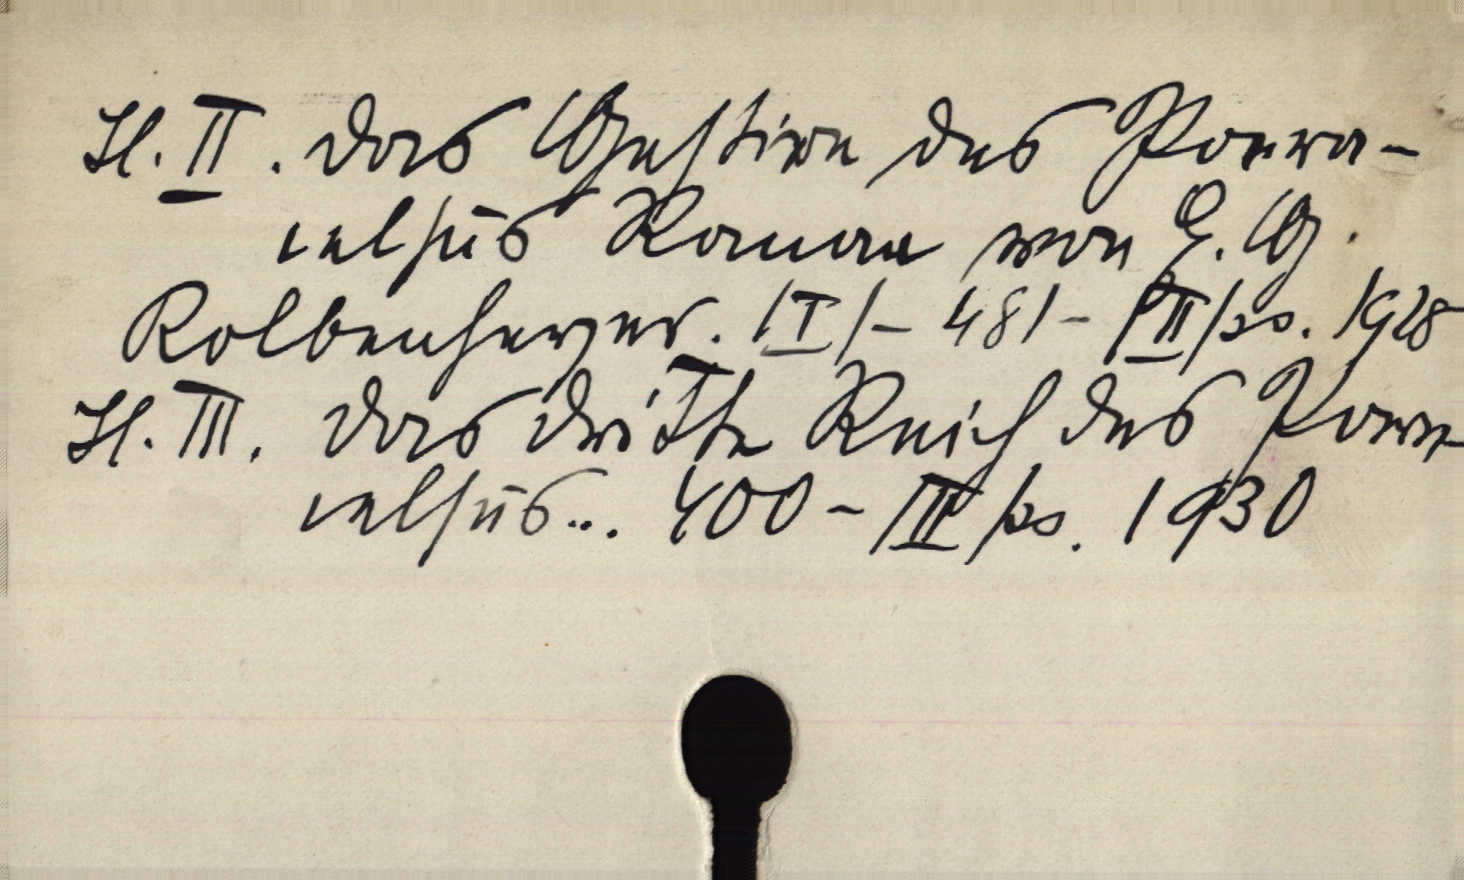 Tl. II. Das Gestirn des Para-
celsus Roman von E. G.
Kolbenheyer. |I|- 481- |II| ss. 1928
Tl. III. Das dritte Reich des Para
celsus... 400 - |III| ss. 1930